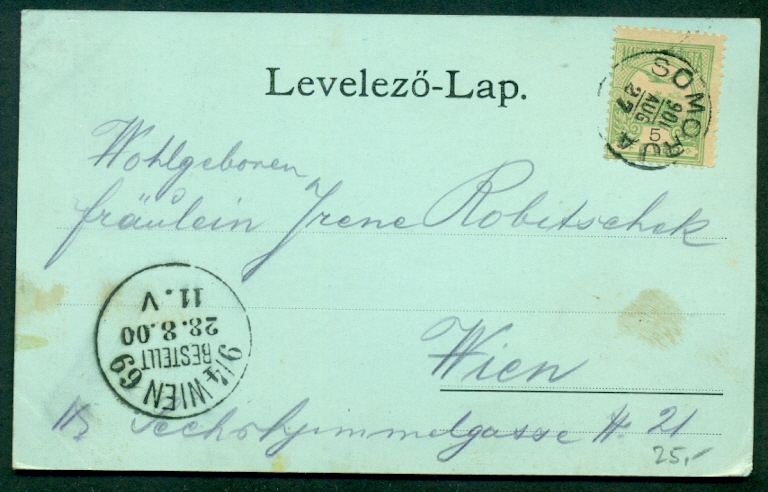 Levelező-Lap.
SOMORJA
901
AUG
27
5
Wohlgeboren
fräulein Irene Robitschek
9/4 WIEN 69
BESTELLT
28.8.00
11.V
Wien
Sechskrimmelgasse 21
25,-